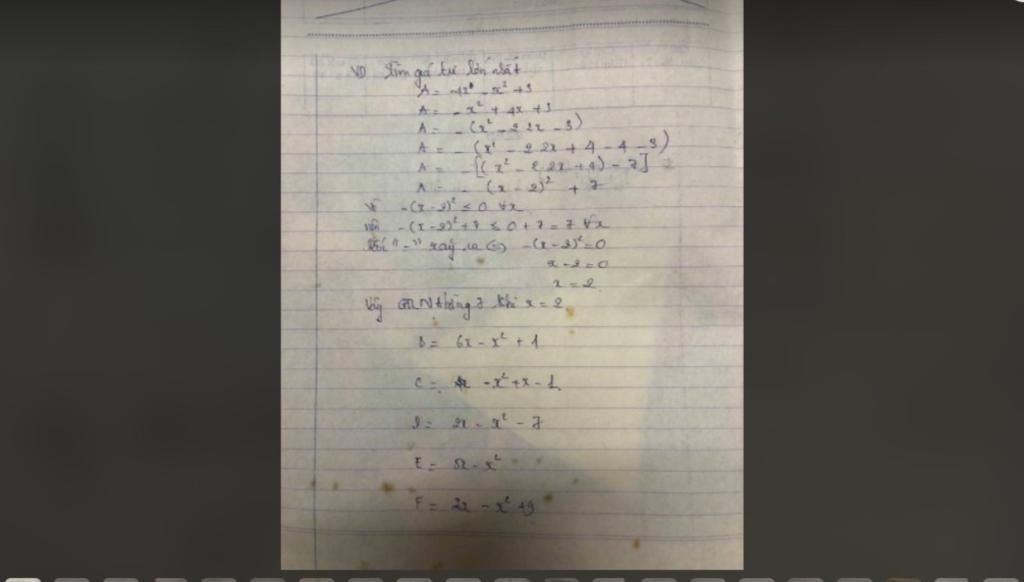 VD Tìm giá trị lớn nhất
A = 4x - x² + 3
A = - x² + 4x + 3
A = - (x² - 2.2x - 3)
A = - (x² - 2.2x + 4 - 4 - 3)
A = - [(x² - 2.2x + 4) - 7]
A = - (x - 2)² + 7
Vì -(x - 2)² ≤ 0 ∀x
nên -(x - 2)² + 7 ≤ 0 + 7 = 7 ∀x
Dấu "=" xảy ra (=) -(x - 2)² = 0
x - 2 = 0
x = 2
Vậy GTLN bằng 7 khi x = 2
B = 6x - x² + 1
C = - x² + x - 1
D = 2x - x² - 7
E = 5x - x²
F = 2x - x² + 9